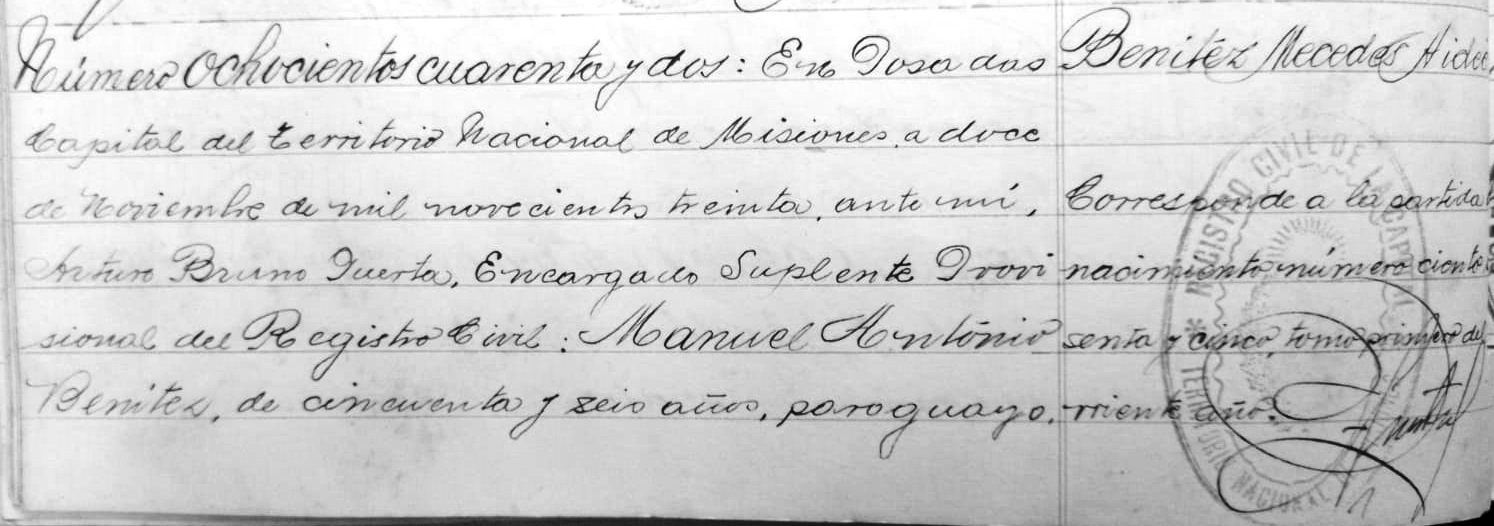 Número ochocientos cuarenta y dos: En Posadas
Capital del territorio Nacional de Misiones, a doce
de Noviembre de mil novecientos treinta, ante mí,
Arturo Bruno Puerta, Encargado Suplente Provi
sional del Registro Civil: Manuel Antonio
Benitez, de cincuenta y seis años, paraguayo,
Benitéz Mecedes Aidee,
Corresponde a la partida
nacimiento número ciento
senta y cinco, tomo primero del
rriente año.
REGISTRO CIVIL DE LA CAPITAL
TERRITORIO NACIONAL